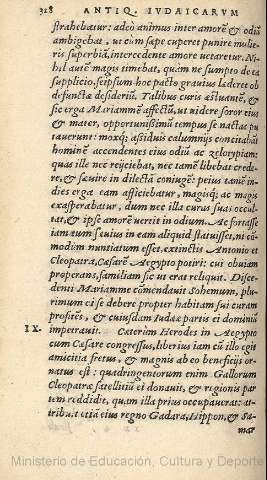 318 ANTIQ. IVDAICARVM
strahebatur: adeò animus inter amorẽ & odiũ
ambigebat, ut cum sæpe cuperet punire mulie-
ris superbiã, intercedente amore uetaretur. Ni-
hil autẽ magis timebat, quàm ne sumpto de ea
supplicio, seipsum hoc pacto grauius læderet ob
defunctæ desideriũ. Talibus curis æstuantẽ, &
sic erga Mariammẽ affectũ, ut uidere soror eius
& mater, opportunissimũ tempus se nactas pu
tauerunt: moxq; assiduis calumnijs concitabãt
hominẽ accendentes eius odiũ ac zelotypiam:
quas ille nec reijciebat, nec tamẽ libebat crede-
re, & sæuire in dilectã coniugẽ: peius tamẽ in-
dies erga eam afficiebatur, magisq; ac magis
exasperabatur, dum nec illa curas suas occul-
tat, & ipse amorẽ uertit in odium. Ac fortasse
iam tum sæuius in eam aliquid statuisset, ni cõ-
modùm nuntiatum esset, extinctis Antonio et
Cleopatra, Cæsarẽ Aegypto potiri: cui obuiam
properans, familiam sic ut erat reliquit. Disce-
denti Mariamme cõmendauit Sohemum, plu-
rimum ei se debere propter habitam sui curam
professus, & cuiusdam Iudææ partis ei dominiũ
IX. impetrauit. Cæterùm Herodes in Aegypto
cum Cæsare congressus, liberius iam cũ illo egit
amicitia fretus, & magnis ab eo beneficijs or-
natus est: quadringentorum enim Gallorum
Cleopatræ satellitiũ ei donauit, & regionis par
tem reddidit, quam illa prius occupauerat: at-
tribuit etiã eius regno Gadara, Hippon, & Sa-
mar
Ministerio de Educación, Cultura y Deporte